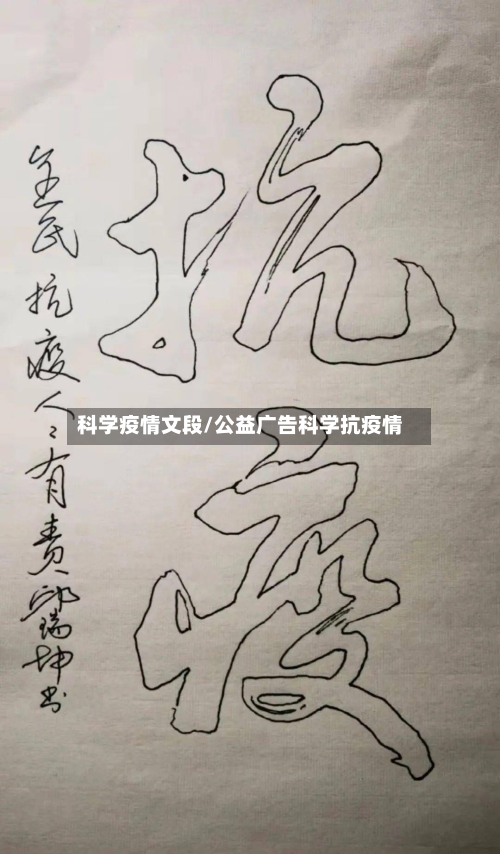 抗疫
全民抗疫人人有责 瑞坤书
科学疫情文段/公益广告科学抗疫情